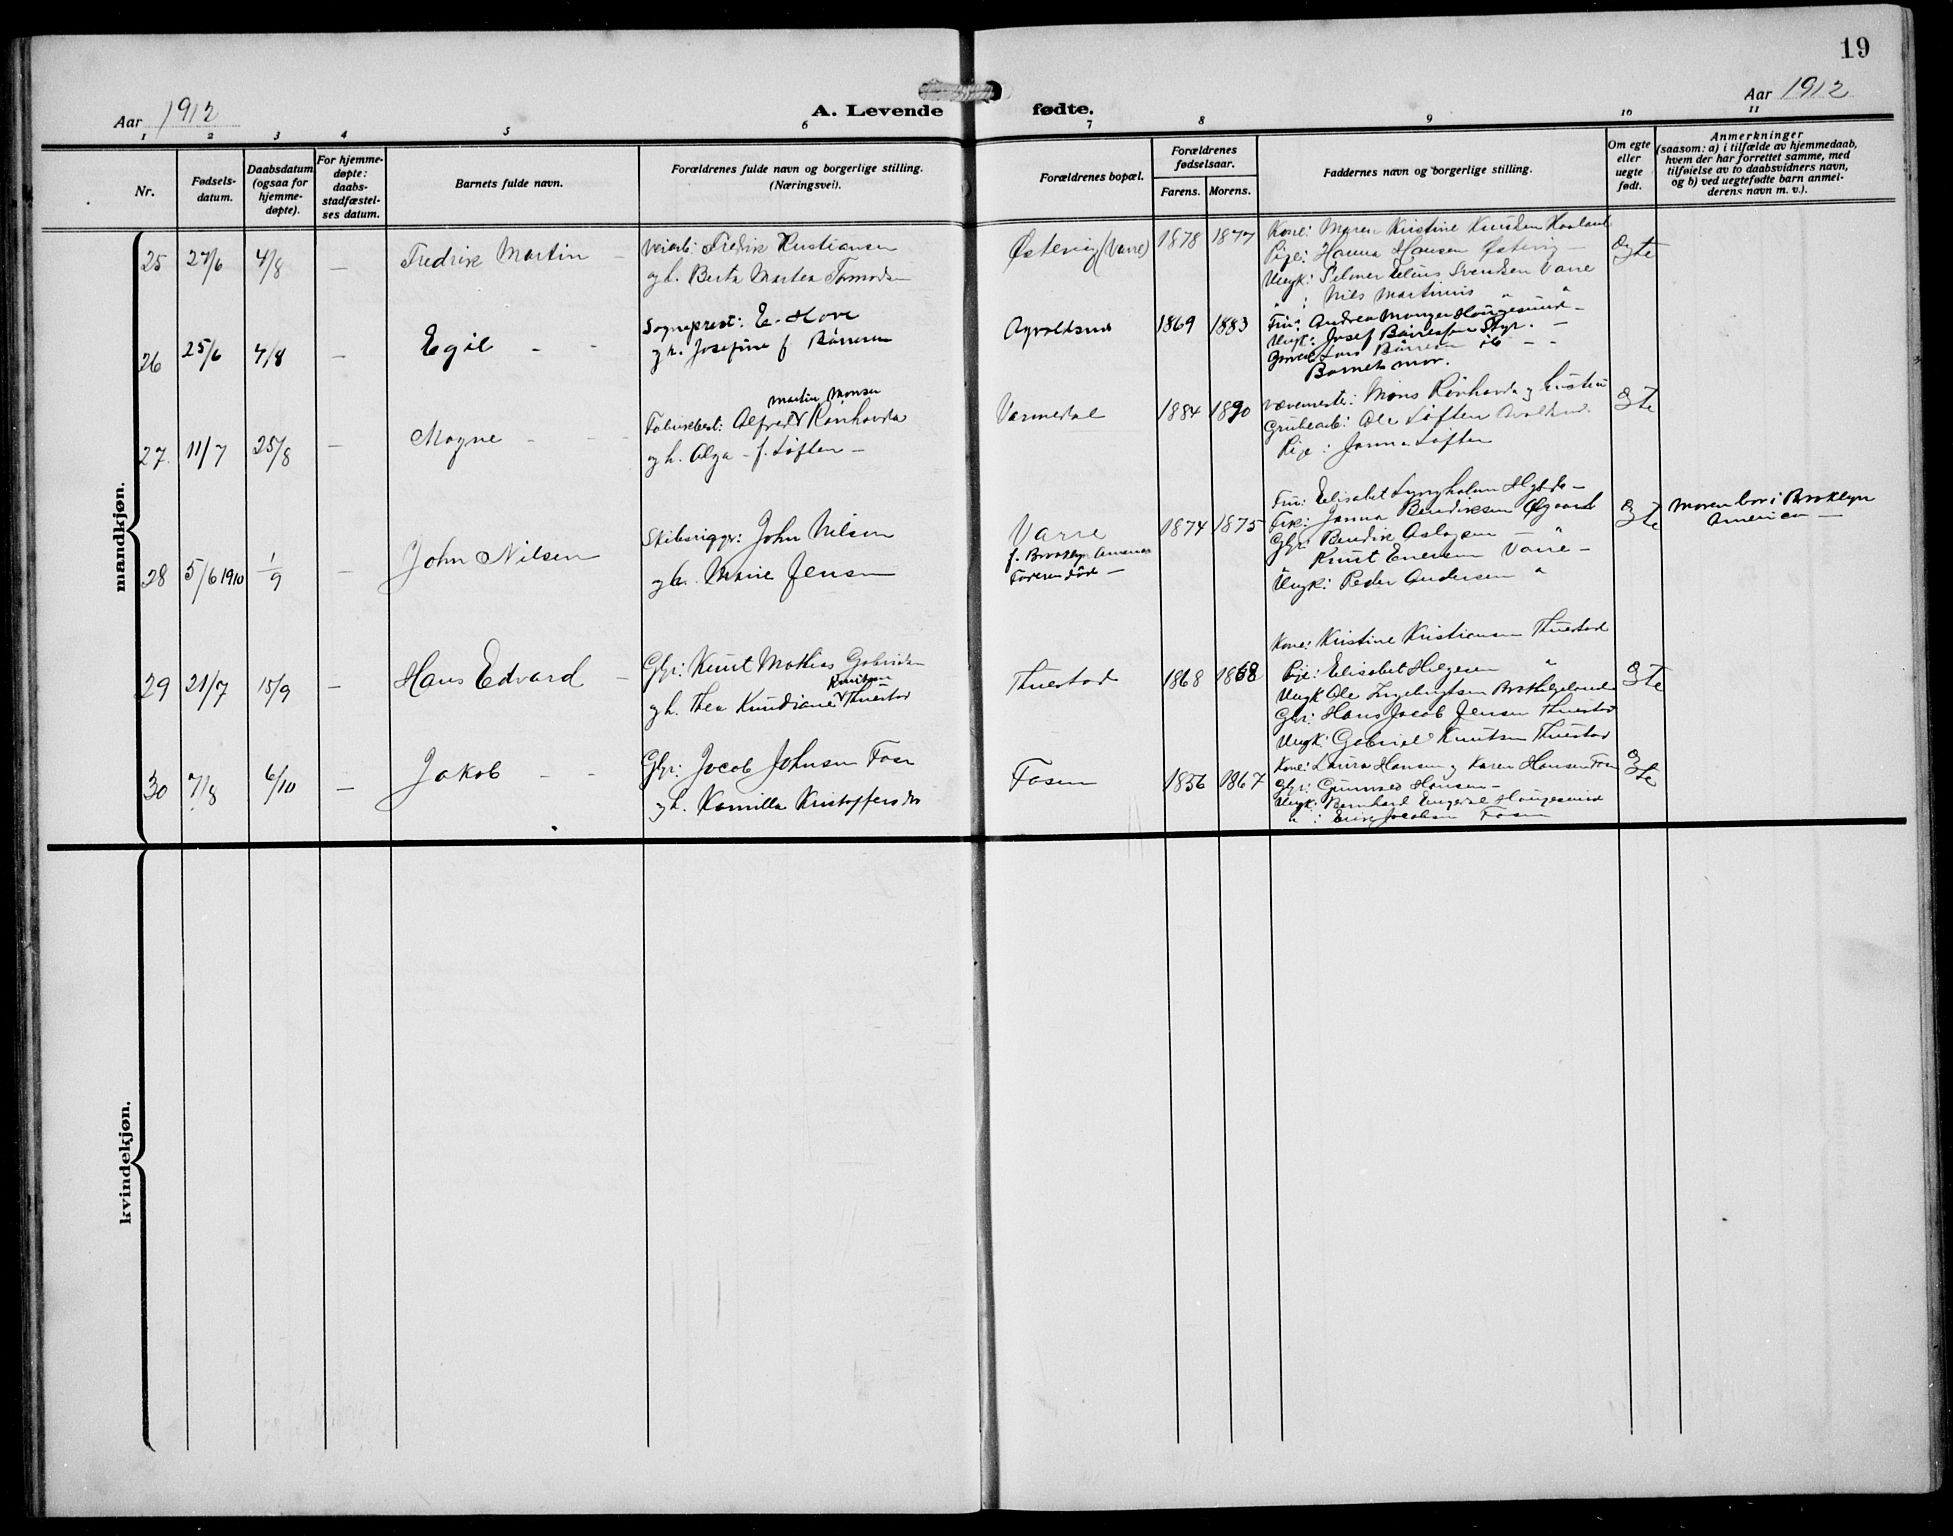 19
Aar 1912
A. Levende fødte.
Aar 1912
1 2 3 4 5 6 7 8 9 10 11
Nr.
Fødsels-
datum.
Daabsdatum
(ogsaa for
hjemme-
døpte).
For hjemme-
døpte:
daabs-
stadfæstel-
ses datum.
Barnets fulde navn.
Forældrenes fulde navn og borgerlige stilling.
(Næringsvei).
Forældrenes bopæl.
Forældrenes
fødselsaar.
Farens. Morens.
Faddernes navn og borgerlige stilling.
Om egte
eller
uegte
født.
Anmerkninger
(saasom: a) i tilfælde av hjemmedaab,
hvem der har forrettet samme, med
tilføielse av to daabsvidners navn,
og b) ved uegtefødte barn anmel-
derens navn m. v.).
mandkjøn.
25 27/6 4/8 — Fredrik Martin —
Veiarb: Fredrik Kristiansen
og h. Berta Martea
Østevig (Varre) 1878 1877
Kone: Maren Kristine Knudsen
Pige: Hanna Hansen Østevig —
Ungk: Svendsen Varre
" : Nils Martinius " "
Egte
26 25/6 4/8 — Egil - -
Sogneprest: E. Hove
og h. Josefine f Børresen
Avaldsnes 1869 1883
Fru: Andrea Monger Haugesund —
Ungk: Josef Børresen —
Lars Børresen — -
Barnets mor.
27. 11/7 25/8 — Magne - -
Martin Monsen
Alfred V Rønhovda
og h. Alga - f. Løften —
Varmedal 1884 1890
Mons Rønhovda og
Grubearb: Ole Løften
Pige: Janna Løften
Egte
28 5/6 1910 1/9 — John Nilsen
Skibsrigger: John Nilsen
og h. Marie Jensen
Varre
f. Brooklyn
Faderen død —
1874 1875
Fru: Elisabet Lyngholm —
Frk: Janna Bendiksen Øygard
Gbr: Bendik Aslagsen
Knut Enersen Varre —
Ungk: Peder Andersen "
Egte
Moren bor i Brooklyn
America —
29 21/7 15/9 — Hans Edvard —
Gbr: Knut Mathias Gabrielsen
Knutsen
og h. Thea Knudiane V Thuestad
Thuestad 1868 1868
Kone: Kristine Kristiansen Thuestad
Pige: Elisabet Helgesen "
Ungk Ole Ingebrigtsen
Gbr: Hans Jacob Jensen Thuestad
Ungk: Gabriel Knutsen Thuestad
Egte
30 7/8 6/10 — Jakob - -
Gbr: Jacob Johnsen Fosen
og h. Kamilla Kristoffersdtr
Fosen 1856 1867
Kone: Laura Hansen og Karen Hansen Fosen
Gbr: Hansen —
Ungk: Bernhard Haugesund
" : Jacobsen Fosen
Egte
kvindekjøn.